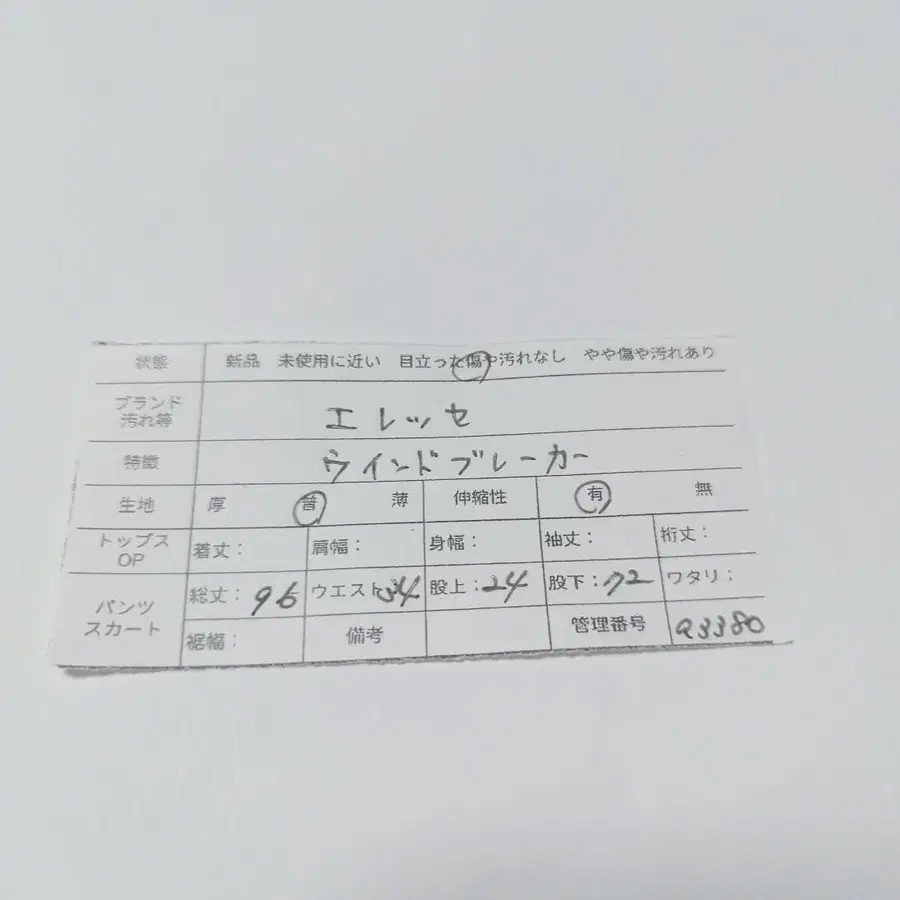 状態 新品 未使用に近い 目立った傷や汚れなし やや傷や汚れあり
ブランド
汚れ等 エレッセ
特徴 ウインドブレーカー
生地 厚 普 薄 伸縮性 有 無
トップス
OP 着丈： 肩幅： 身幅： 袖丈： 裄丈：
パンツ
スカート 総丈：96 ウエスト：34 股上：24 股下：72 ワタリ：
裾幅： 備考 管理番号 a3380